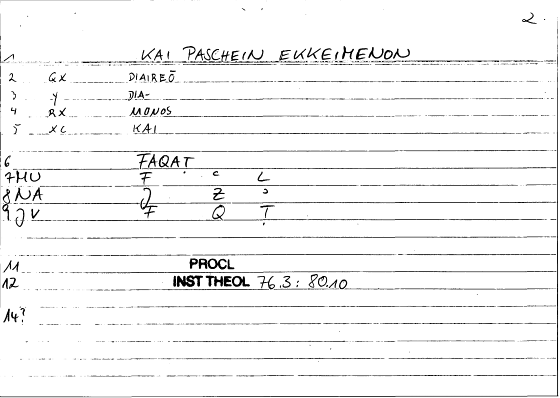 2.
1 KAI PASCHEIN EKKEIMENON
2 GX DIAIREŌ
3 y DIA-
4 RX MONOS
5 XC KAI
6 FAQAT
7 MU F c L
8 NA J Z
9 JV F Q Ṭ
11 PROCL
12 INST THEOL 76.3 : 80.10
14?